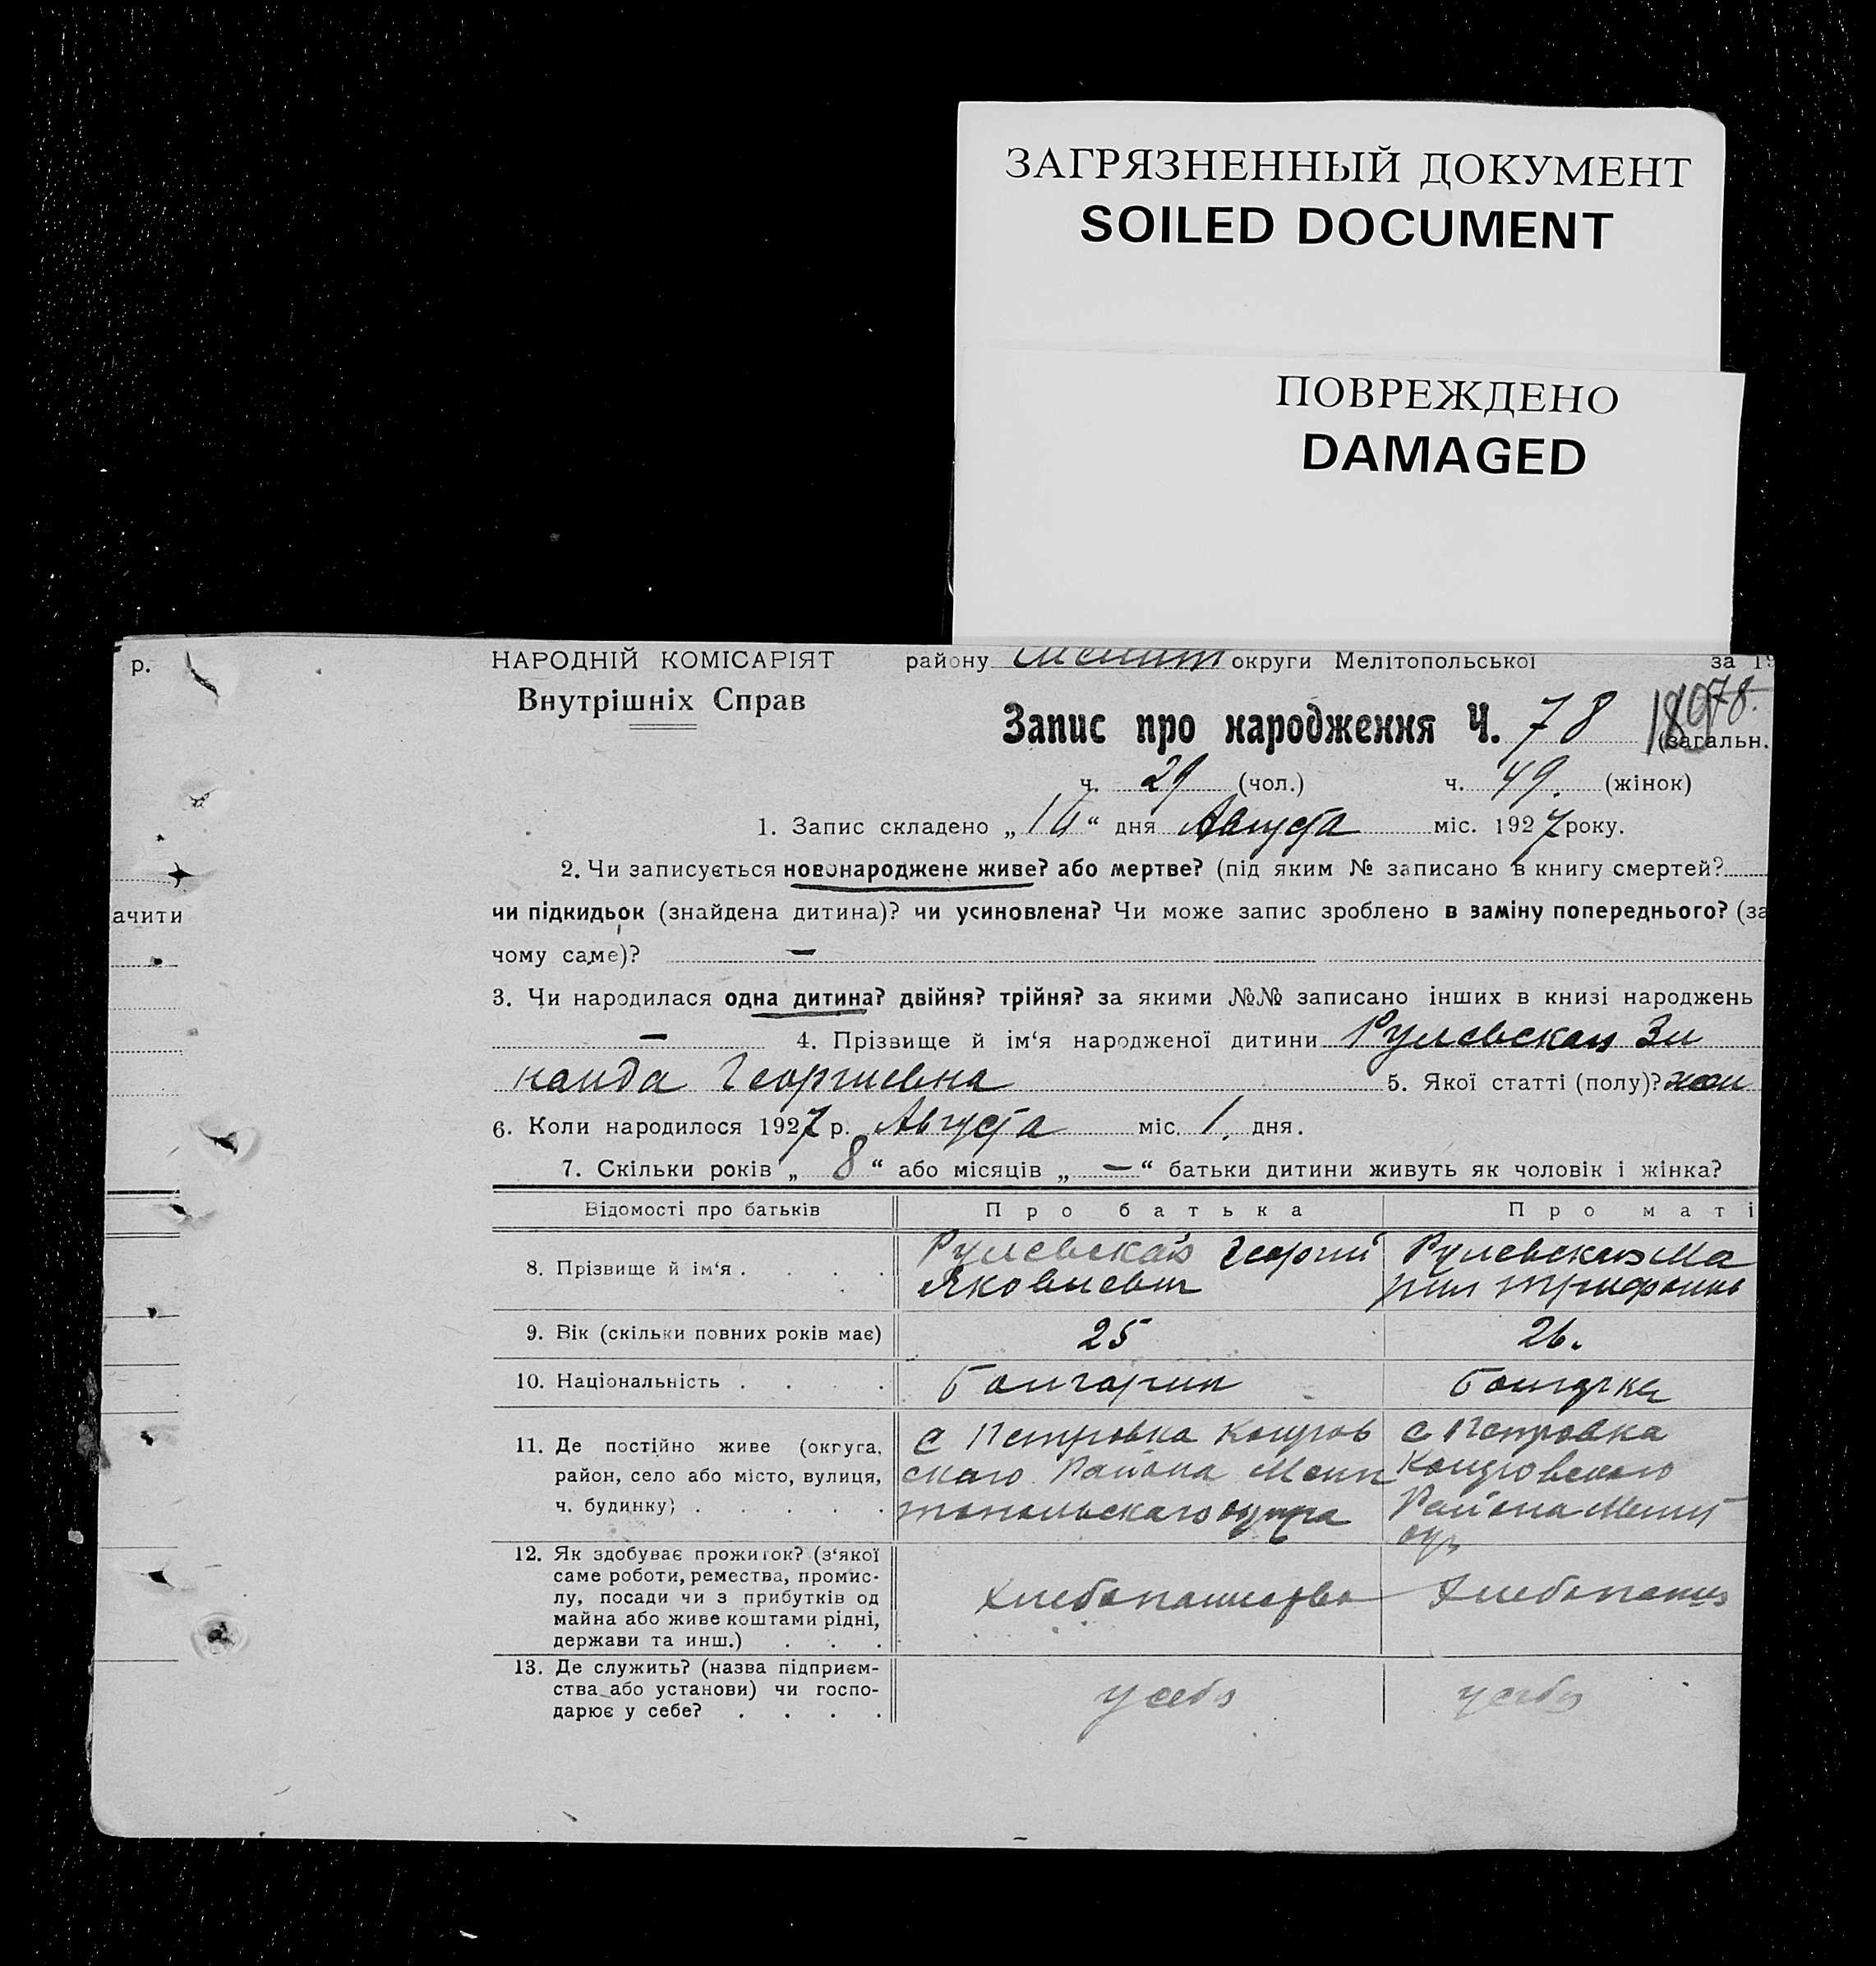 ЗАГРЯЗНЕННЫЙ ДОКУМЕНТ
SOILED DOCUMENT
ПОВРЕЖДЕНО
DAMAGED
р.
НАРОДНІЙ КОМІСАРІЯТ району округи Мелітопольської за 19
Внутрішніх Справ
Запис про народження Ч. 78 78.
(загальн.
ч. 29 (чол.) ч. 49. (жінок)
1. Запис складено „ “ дня Августа міс. 1927 року.
2. Чи записується новонароджене живе? або мертве? (під яким № записано в книгу смертей?
ачити
чи підкидьок (знайдена дитина)? чи усиновлена? Чи може запис зроблено в заміну попереднього? (за
чому саме)? —
3. Чи народилася одна дитина? двійня? трійня? за якими №№ записано інших в книзі народжень
— 4. Прізвище й ім‘я народженої дитини Рулевская Зи
наида Георгиевна 5. Якої статті (полу)? жен
6. Коли народилося 1927 р. Августа міс. 1. дня.
7. Скільки років „ 8 “ або місяців „ — “ батьки дитини живуть як чоловік і жінка?
Відомості про батьків Про батька Про маті
8. Прізвище й ім‘я . . . . Рулевская Георгий Рулевская Ма
Яковлевич рия Трифонов
9. Вік (скільки повних років має) 25 26.
10. Національність . . . . Болгарин болгарка
11. Де постійно живе (округа, с Петровка с Петровка
район, село або місто, вулиця, скаго Района Мели
ч. будинку) . . . . . топольскаго округа Района Мелит
окр
12. Як здобуває прожиток? (з‘якої
саме роботи, ремества, промис-
лу, посади чи з прибутків од Хлебопашество Хлебопаш
майна або живе коштами рідні,
держави та инш.) . . .
13. Де служить? (назва підприєм-
ства або установи) чи госпо- у себя у себя
дарює у себе? . . . .